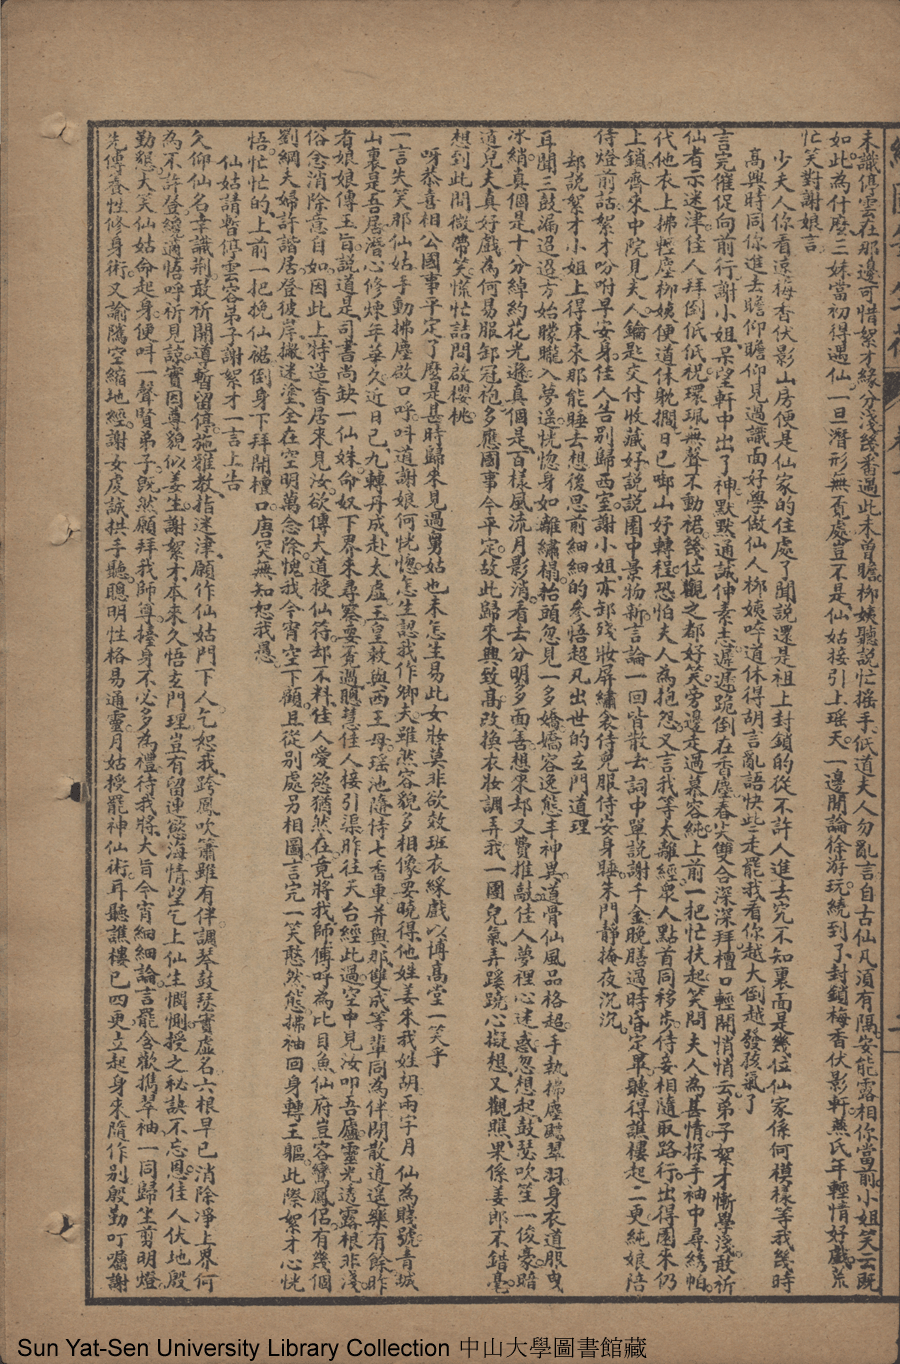 未識停雲在那邊可惜絮才緣分淺幾番過此未曾瞻柳姨聽說忙搖手低道夫人勿亂言自古仙凡須有隔安能露相你當前小姐笑云既
如此為什麼三妹當初得遇仙一旦潛形無覓處豈不是仙姑接引上瑤天一邊閒論徐游玩繞到了封鎖梅香伏影軒燕氏年輕情好戲荒
忙笑對謝娘言
少夫人你看這梅香伏影山房便是仙家的住處了聞說還是祖上封鎖的從不許人進去究不知裏面是幾位仙家係何模樣等我幾時
高興時同你進去瞻仰瞻仰見過識面好學做仙人柳姨吟道休得胡言亂語快些走罷我看你越大倒越發孩氣了
言完催促向前行謝小姐呆望軒中出了神默默通誠伸素志遲遲跪倒在香塵春尖雙合深深拜檀口輕開悄悄云弟子絮才慚學淺敢祈
仙者示迷津佳人拜倒低低祝環珮無聲不動裙幾位觀之都好笑旁邊走過慕容純上前一把忙扶起笑問夫人為甚情探手袖中尋綉帕
代他衣上拂輕塵柳姨便道休躭擱日已啣山好轉程恐怕夫人為抱怨又言我等太離經衆人點首同移步侍妾相隨取路行出得園來仍
上鎖齊來中院見夫人鑰匙交付收藏好說說園中景物新言論一回皆散去詞中單說謝千金晚膳過時昏定畢聽得譙樓起二更純娘陪
侍燈前話絮才吩咐早安身佳人告別歸西室謝小姐亦卸殘妝屏繡衾侍兒服侍安身睡朱門靜掩夜沉沉
却說絮才小姐上得床來那能睡去想後思前細細的參悟超凡出世的玄門道理
耳聞三鼓漏迢迢方始朦朧入夢遙恍惚身如離繡榻抬頭忽見一多嬌嬌容逸態丰神異道骨仙風品格超手執拂塵飄翠羽身衣道服曳
冰綃真個是十分綽約花光遜真個是百樣風流月影消看去分明多面善想來却又費推敲佳人夢裡心迷惑忽想起鼓瑟吹笙一俊豪暗
道兒夫真好戲為何易服卸冠袍多應國事今平定故此歸來興致高改換衣妝調弄我一團兒氣弄蹊蹺心擬想又觀瞧果係姜郎不錯毫
想到此間微帶笑慌忙詰問啟櫻桃
呀恭喜相公國事平定了麼是甚時歸來見過舅姑也未怎生易此女妝莫非欲效班衣綵戲以博高堂一笑乎
一言失笑那仙姑手動拂塵啟口呼呌道謝娘何恍惚怎生認我作卿夫雖然容貌多相像要曉得他姓姜來我姓胡兩字月仙為賤號青城
山裏是吾居潛心修煉年華久近日已九轉丹成赴太虛玉皇敕與西王母瑤池隨侍七香車并與那雙成等輩同為伴閒散逍遙樂有餘昨
者娘娘傳玉旨說道是司書尚缺一仙姝命奴下界來尋察要覓過聰慧佳人接引渠昨往天台經此過空中見汝叩吾廬靈光透露根非淺
俗念消除意自如因此上特造香居來見汝欲傳大道授仙符却不料佳人愛慾猶然在竟將我師傅呼為比目魚仙府豈容鸞鳳侶有幾個
劉綱夫婦許諧居登彼岸撇迷塗全在空明萬念除愧我今宵空下顧且從別處另相圖言完一笑憨然態拂袖回身轉玉軀此際絮才心恍
悟忙忙的上前一把挽仙裾倒身下拜開檀口唐突無知恕我愚
仙姑請暫停雲容弟子謝絮才一言上告
久仰仙名幸識荆敢祈開道暫留停施雅教指迷津願作仙姑門下人乞恕我跨鳳吹簫雖有伴調琴鼓瑟實虛名六根早已消除淨上界何
為不許登纔適悟呼祈見諒實因尊貌似姜生謝絮才本來久悟玄門理豈有留連慾海情望乞上仙生憫惻授之秘訣不忘恩佳人伏地殷
勤懇大笑仙姑命起身便呌一聲賢弟子既然願拜我師尊擡身不必多為禮待我將大旨今宵細細論言罷含歡携翠袖一同歸坐剪明燈
先傳養性修身術又諭騰空縮地經謝女虔誠拱手聽聰明性格易通靈月姑授罷神仙術耳聽譙樓已四更立起身來隨作別殷勤叮囑謝
Sun Yat-Sen University Library Collection 中山大學圖書館藏